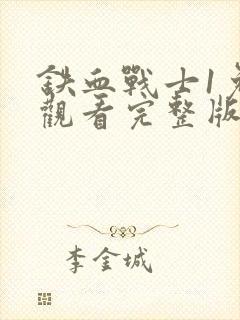 鐵血戰士1免
觀看完整版
李金城